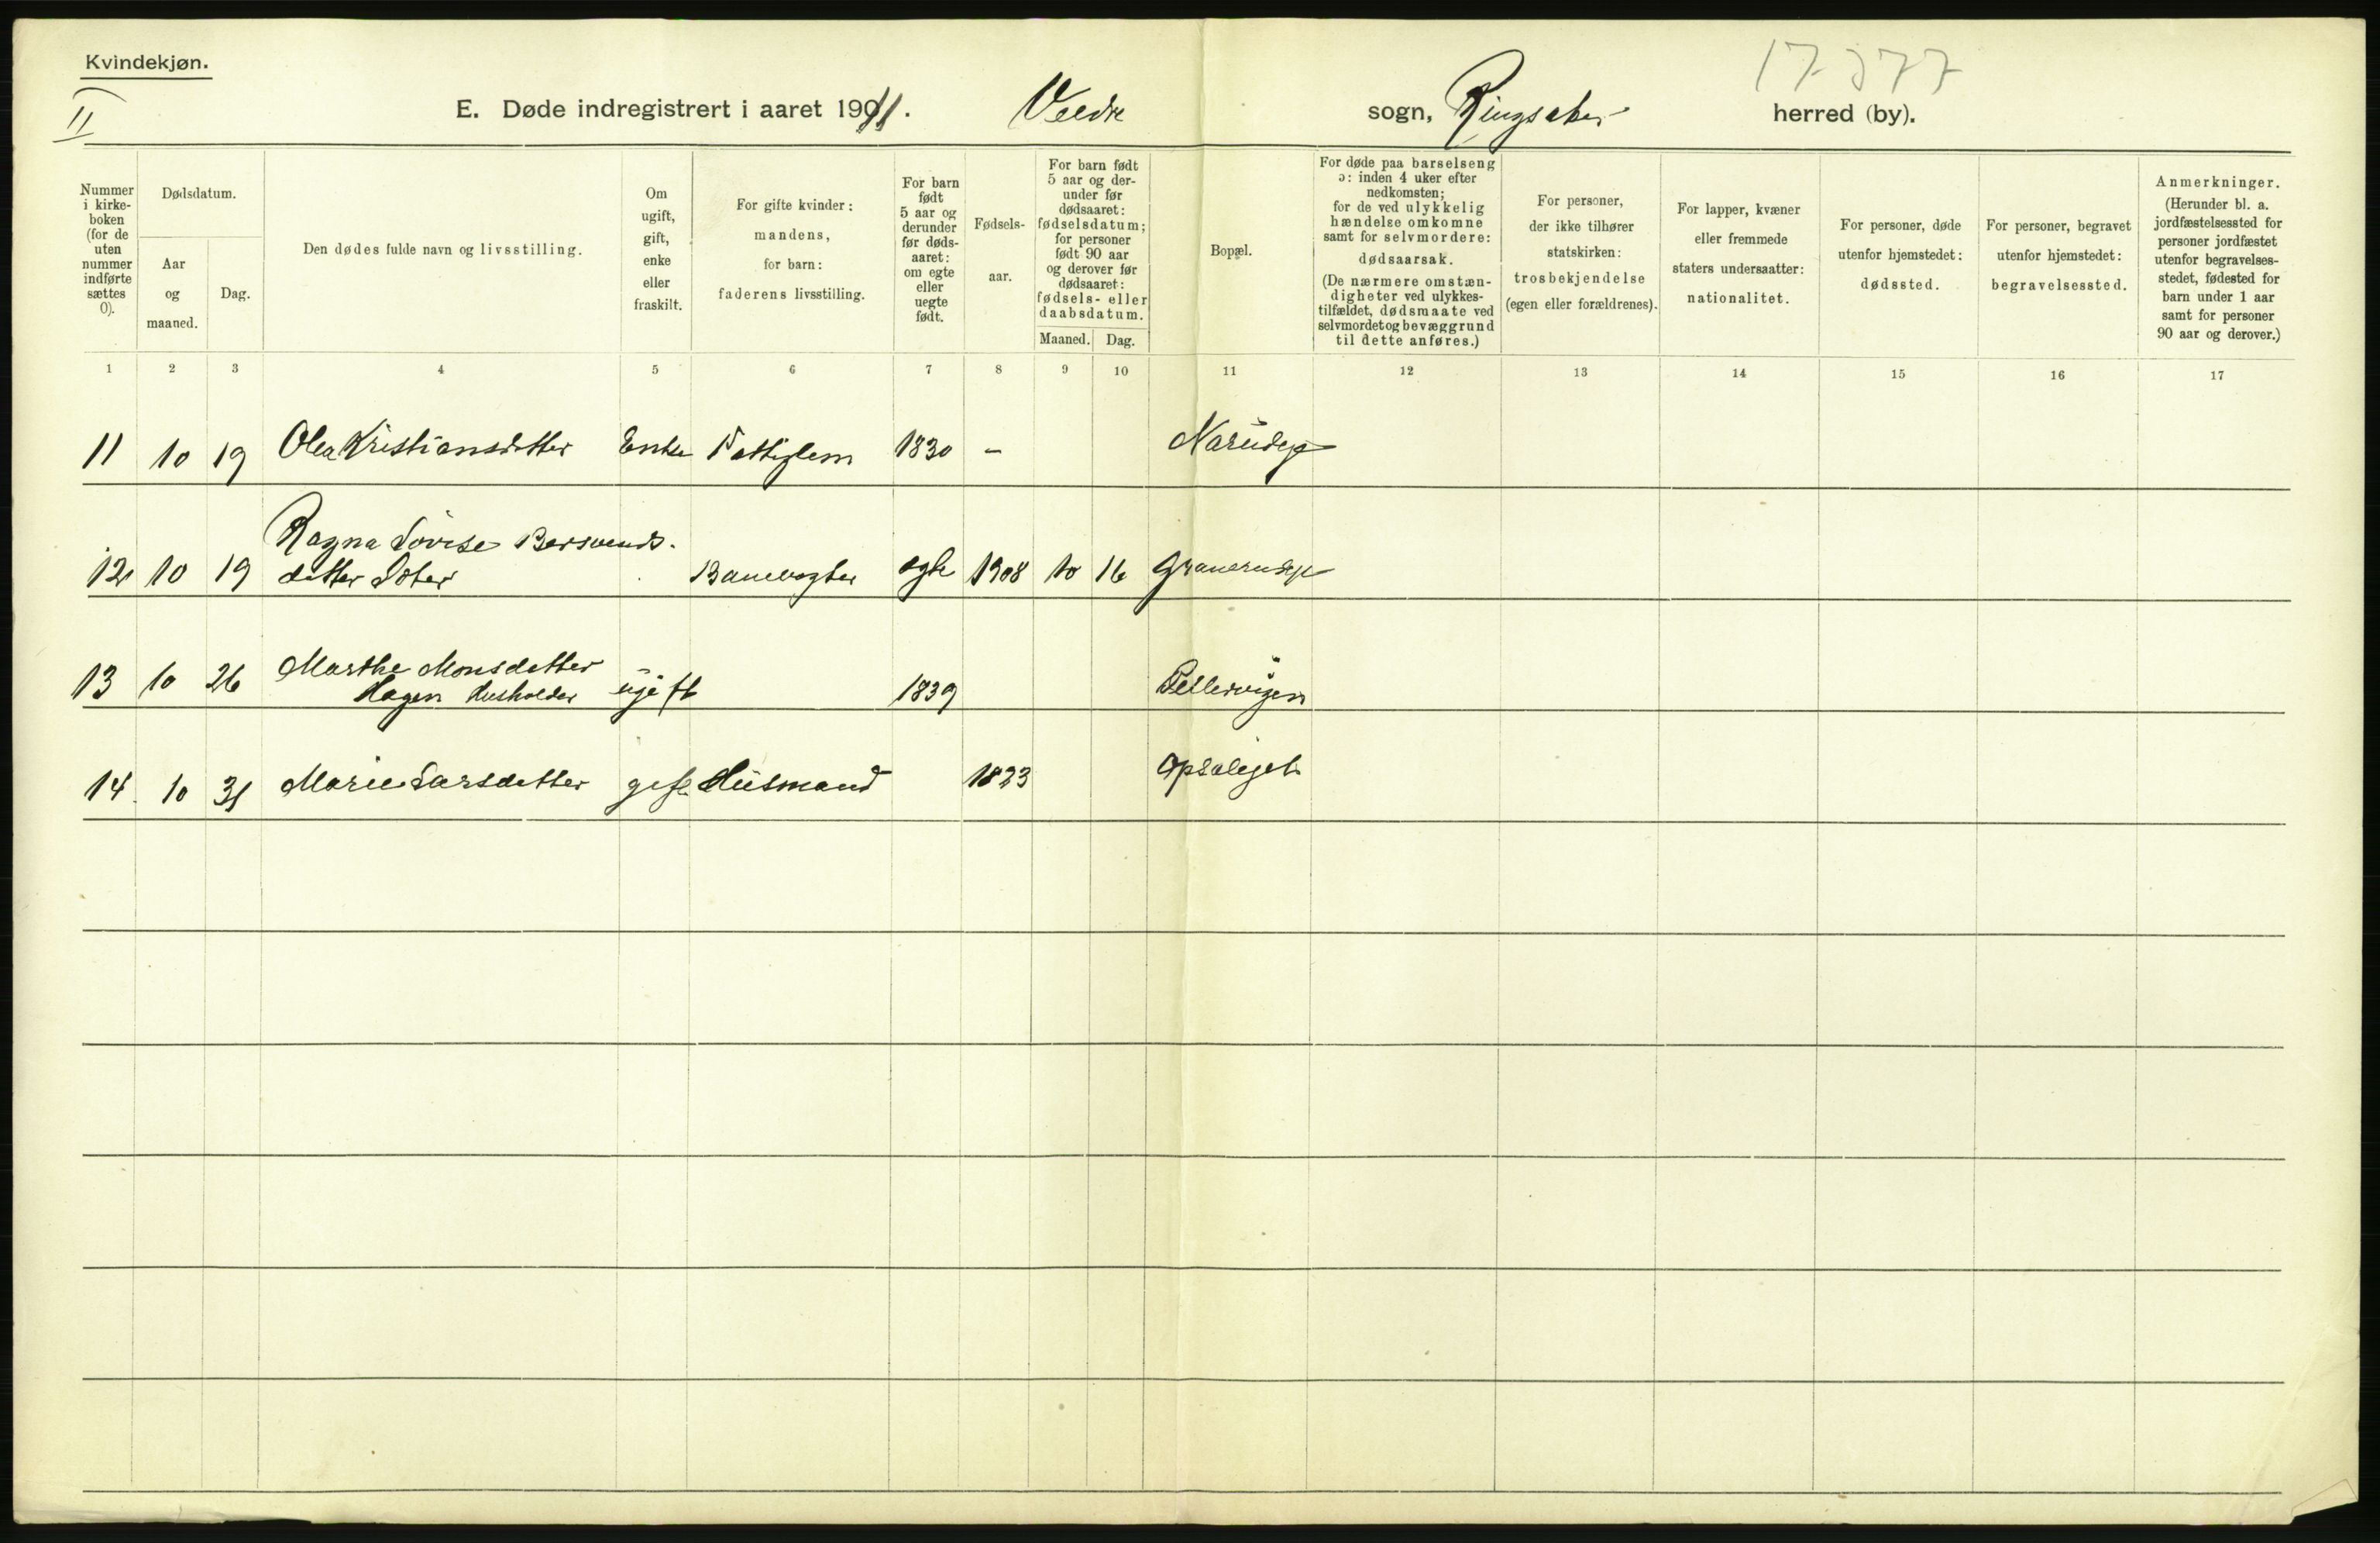 Kvindekjøn.
II
17 377
E. Døde indregistrert i aaret 1911. Veldre sogn, Ringsaker herred (by).
Nummer i kirke-boken (for de uten nummer indførte sættes 0).
Dødsdatum.
Aar og maaned.
Dag.
Den dødes fulde navn og livsstilling.
Om ugift, gift, enke eller fraskilt.
For gifte kvinder: mandens, for barn: faderens livsstilling.
For barn født 5 aar og derunder før døds-aaret: om egte eller uegte født.
Fødsels-aar.
For barn født 5 aar og der-under før dødsaaret: fødselsdatum; for personer født 90 aar og derover før dødsaaret: fødsels- eller daabsdatum.
Maaned. Dag.
Bopæl.
For døde paa barselseng ɔ: inden 4 uker efter nedkomsten; for de ved ulykkelig hændelse omkomne samt for selvmordere: dødsaarsak. (De nærmere omstæn-digheter ved ulykkes-tilfældet, dødsmaate ved selvmordet og bevæggrund til dette anføres.)
For personer, der ikke tilhører statskirken: trosbekjendelse (egen eller forældrenes).
For lapper, kvæner eller fremmede staters undersaatter: nationalitet.
For personer, døde utenfor hjemstedet: dødssted.
For personer, begravet utenfor hjemstedet: begravelsessted.
Anmerkninger. (Herunder bl. a. jordfæstelsessted for personer jordfæstet utenfor begravelses-stedet, fødested for barn under 1 aar samt for personer 90 aar og derover.)
1 2 3 4 5 6 7 8 9 10 11 12 13 14 15 16 17
11 10 19 Olea Kristiansdatter Enke Fattiglem 1830 – Narudeje
Ragna Lovise Bersvends-
12 10 19 datter Sæter Banevogter egte 1908 10 16 Granerudeje
Marthe Monsdatter
13 10 26 Hagen Husholder ugift 1839 Pellervigen
14. 10 31 Marie Larsdatter gift Husmand 1823 Opsalejet